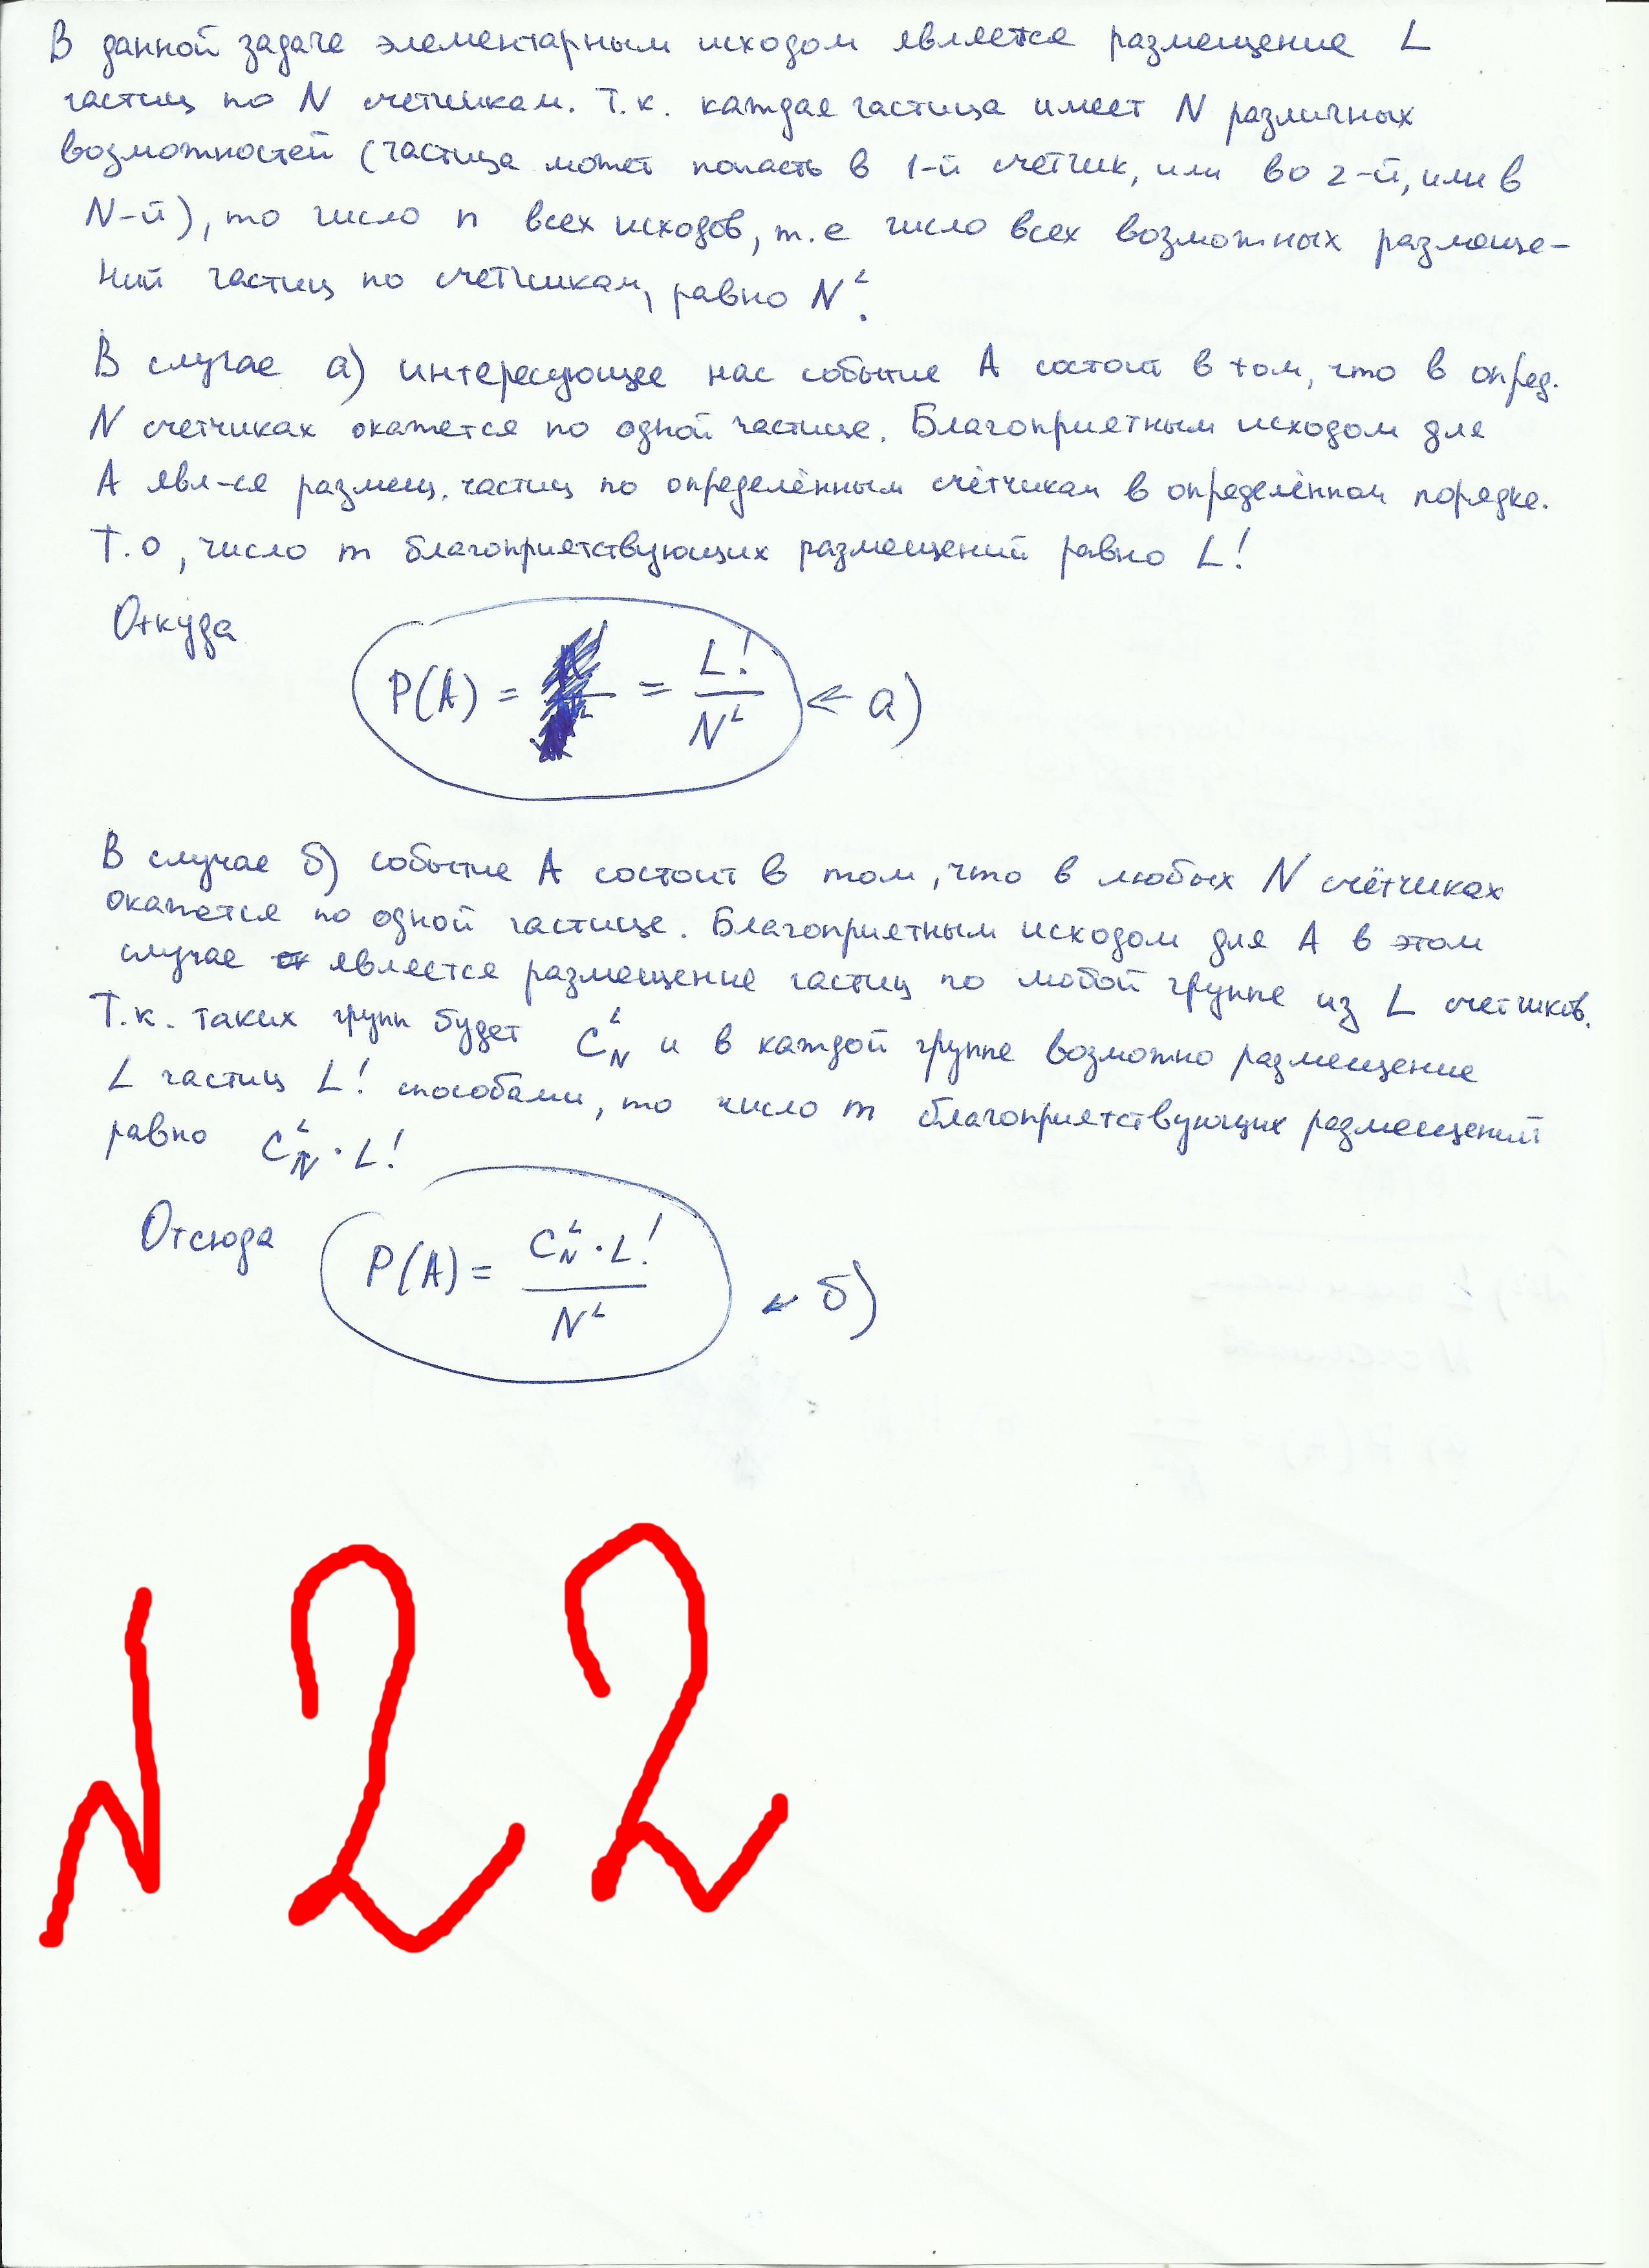 В данной задаче элементарным исходом является размещение L
частиц по N счетчикам. Т.к. каждая частица имеет N различных
возможностей (частица может попасть в 1-й счетчик, или во 2-й, или в
N-й), то число n всех исходов, т.е число всех возможных размеще-
ний частиц по счетчикам, равно N^L.
В случае а) интересующее нас событие A состоит в том, что в опред.
N счетчиках окажется по одной частице. Благоприятным исходом для
A явл-ся размещ. частиц по определённым счётчикам в определённом порядке.
Т.о, число m благоприятствующих размещений равно L!
Откуда
P(A) = = L!/N^L ← а)
В случае б) событие A состоит в том, что в любых N счётчиках
окажется по одной частице. Благоприятным исходом для A в этом
случае является размещение частиц по любой группе из L счетчиков.
Т.к. таких групп будет C_N^L и в каждой группе возможно размещение
L частиц L! способами, то число m благоприятствующих размещений
равно C_N^L · L!
Отсюда
P(A) = C_N^L · L!/N^L ← б)
N22